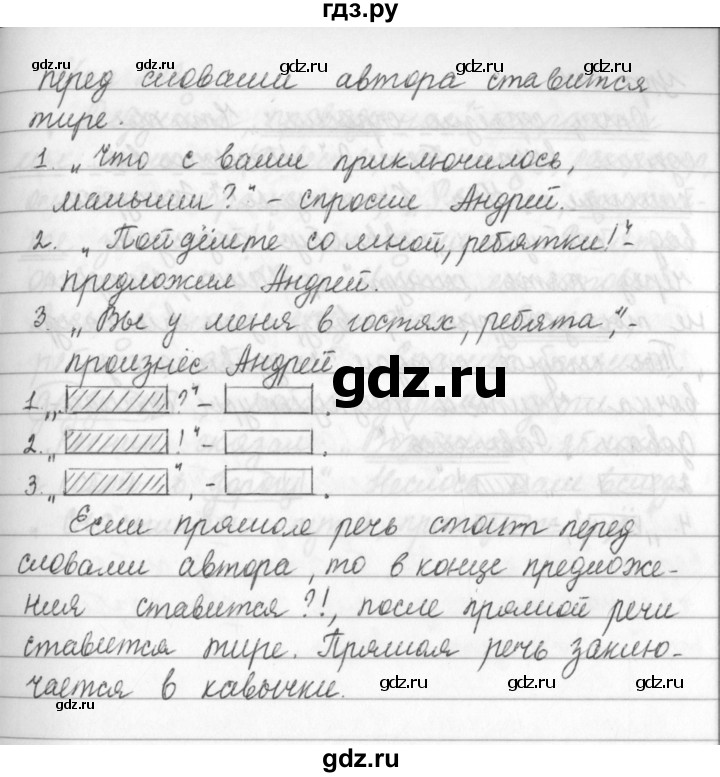 гдз.ру
gdz.ru gdz.ru gdz.ru gdz.ru
перед словами автора ставится
тире.
1. „Что с вами приключилось,
малыши?“ – спросил Андрей.
2. „Пойдёмте со мной, ребятки!“ –
предложил Андрей.
3. „Вы у меня в гостях, ребята,“ –
произнёс Андрей
gdz.ru
1. „ ?“ – .
2. „ !“ – .
3. „ “, – .
Если прямая речь стоит перед
словами автора, то в конце предложе-
ния ставится ?!, после прямой речи
ставится тире. Прямая речь заклю-
чается в кавычки.
gdz.ru gdz.ru gdz.ru gdz.ru
gdz.ru